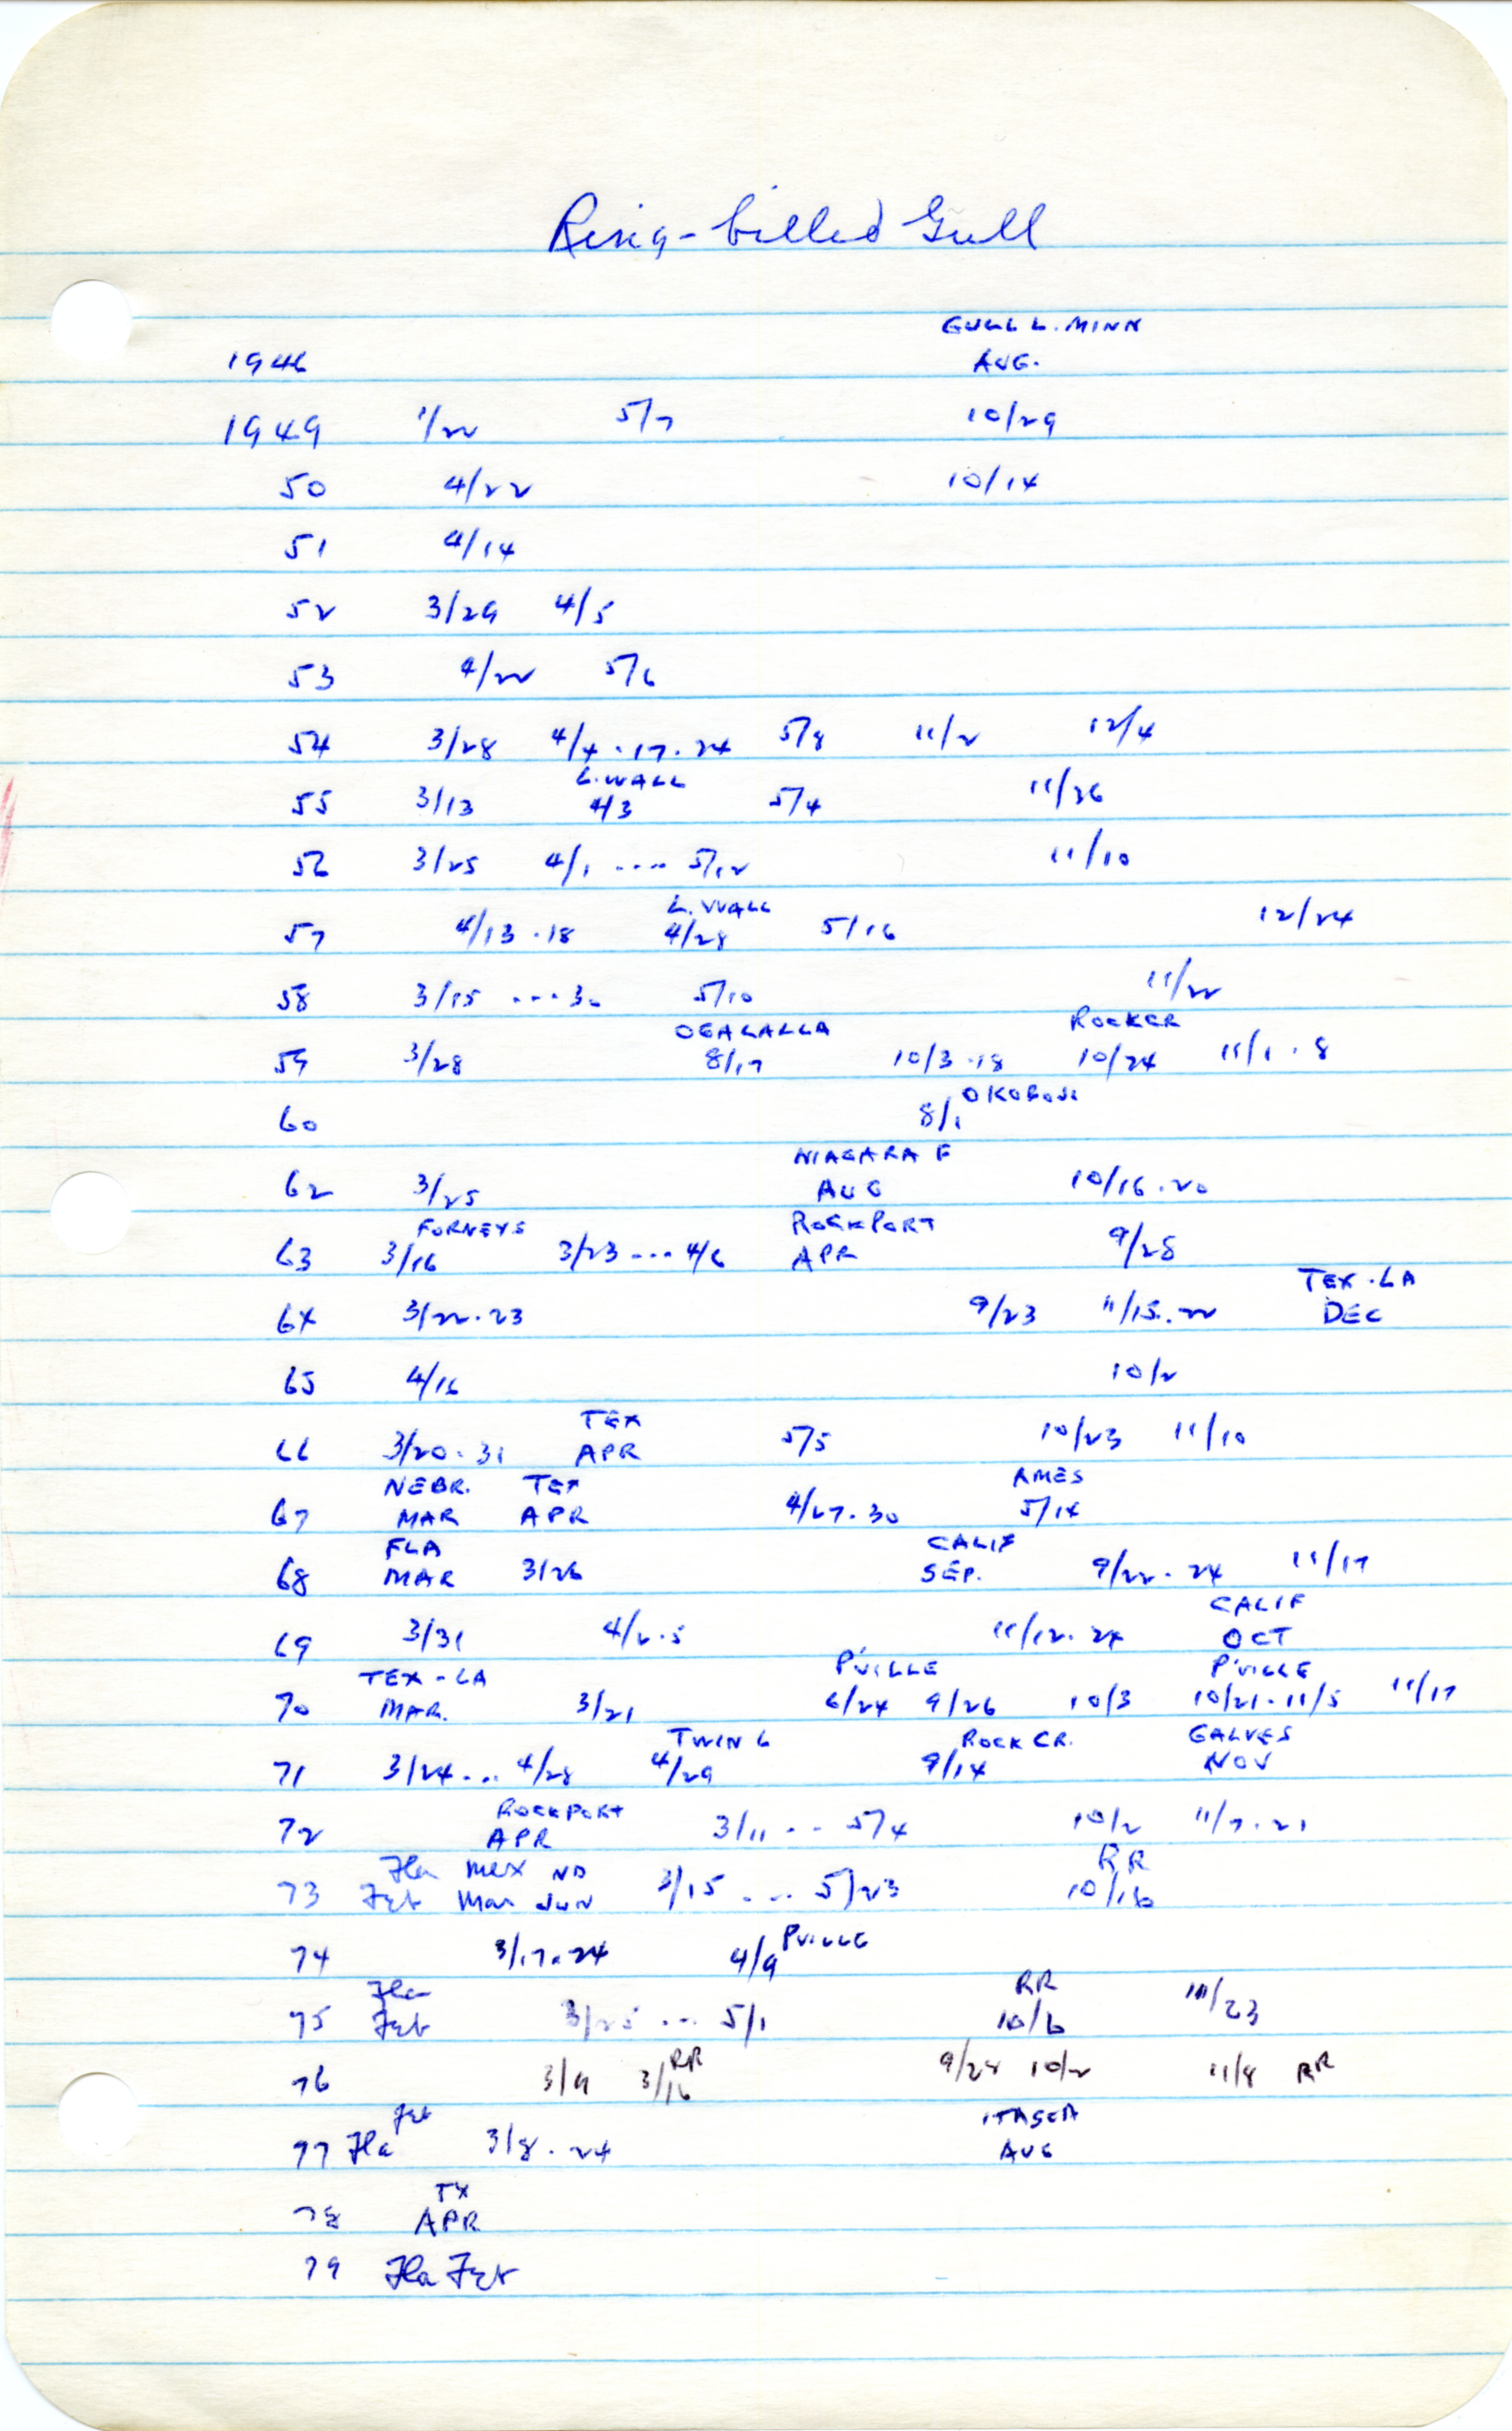 Ring-billed Gull
GULL L. MINN
1946 AUG.
1949 1/22 5/7 10/29
50 4/22 10/14
51 4/14
52 3/29 4/5
53 4/22 5/6
54 3/28 4/4 . 17 . 24 5/8 11/2 12/4
L. WALL
55 3/13 4/3 5/4 11/26
56 3/25 4/1 .... 5/12 11/10
L. WALL
57 4/13 . 18 4/28 5/16 12/24
58 3/15 ... 30 5/10 11/22
OGALALLA ROCK CR
59 3/28 8/17 10/3 . 18 10/24 11/1 . 8
60 8/1 OKOBOJI
NIAGARA F
62 3/25 AUG 10/16 . 20
FORNEYS ROCKPORT
63 3/16 3/23 ... 4/6 APR 9/28
TEX . LA
64 3/22 . 23 9/23 11/15 . 22 DEC
65 4/16 10/2
TEX
66 3/20 . 31 APR 5/5 10/23 11/10
NEBR. TEX AMES
67 MAR APR 4/27 . 30 5/14
FLA CALIF
68 MAR 3/26 SEP. 9/22 . 24 11/17
CALIF
69 3/31 4/2 . 5 11/12 . 24 OCT
TEX - LA P'VILLE P'VILLE
70 MAR. 3/21 6/24 9/26 10/3 10/21 . 11/5 11/17
TWIN L ROCK CR. GALVES
71 3/24 ... 4/28 4/29 9/14 NOV
ROCKPORT
72 APR 3/11 .. 5/4 10/2 11/7 . 21
Fla Mex ND RR
73 Feb Mar JUN 3/15 ... 5/23 10/16
74 3/17 . 24 4/9 PVILLE
Fla RR
75 Feb 3/25 ... 5/1 10/6 11/23
76 3/9 3/16 RR 9/28 10/2 11/8 RR
Feb ITASCA
77 Fla 3/8 . 24 AUG
TX
78 APR
79 Fla Feb